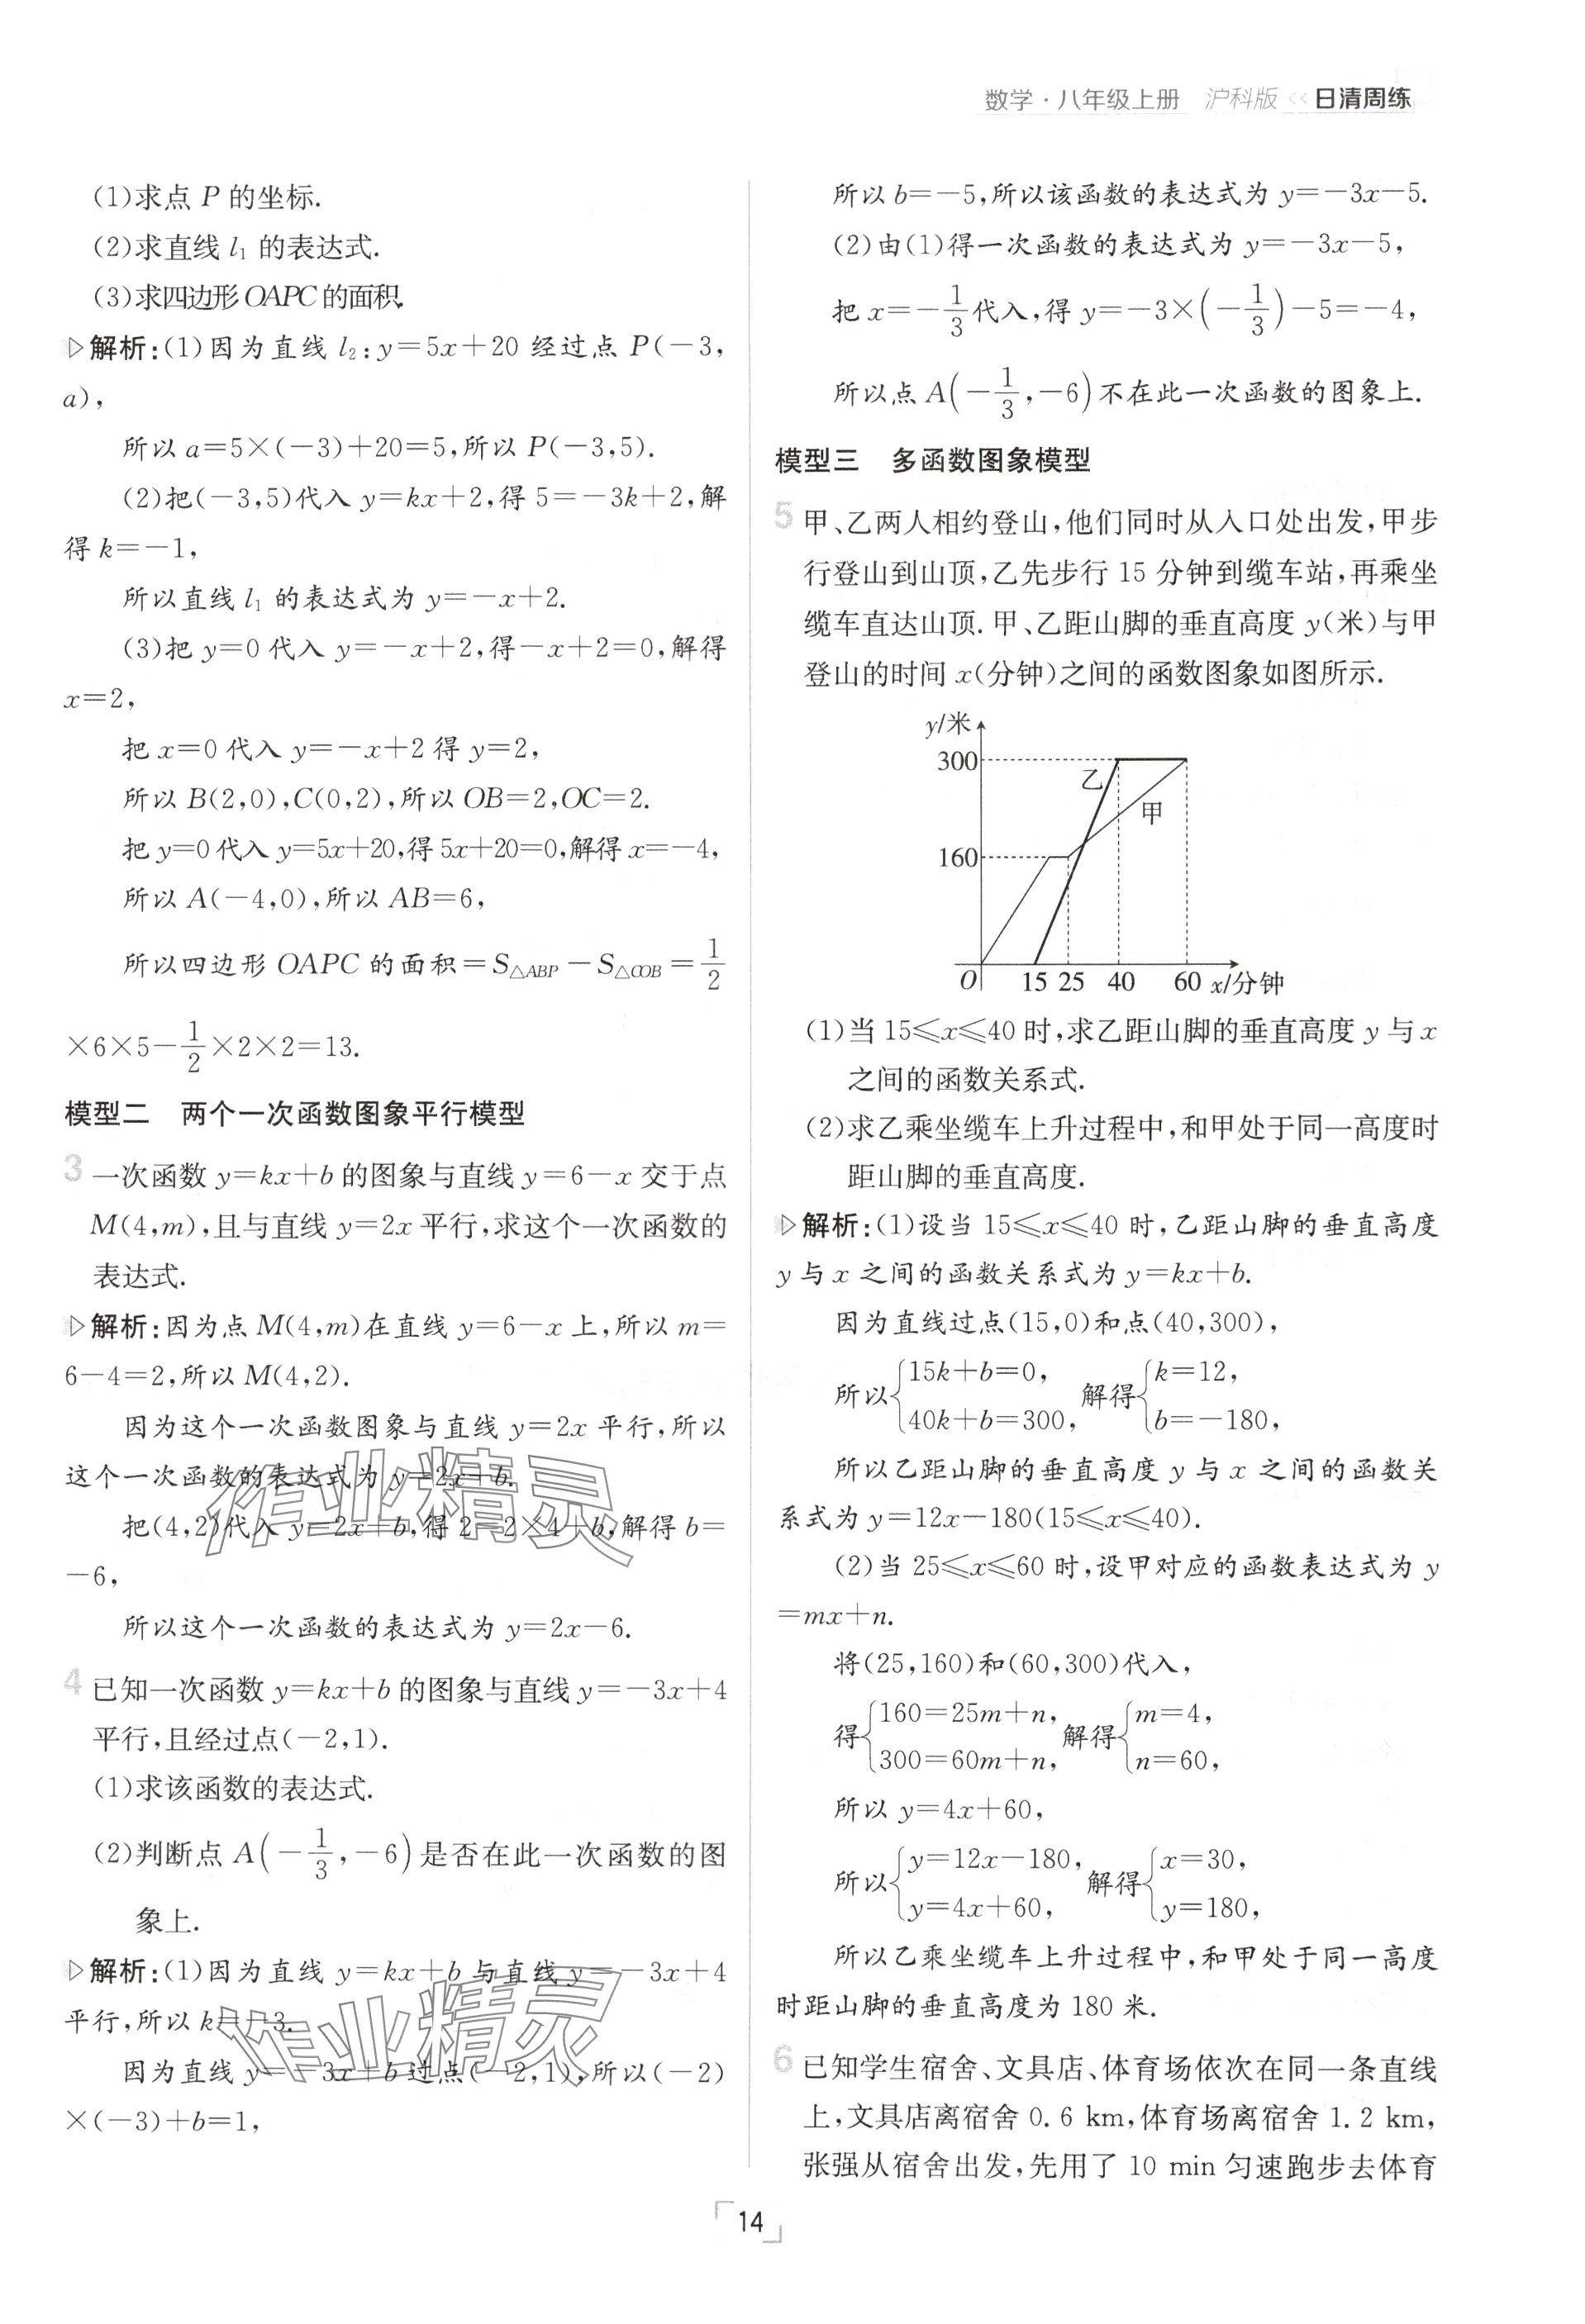 数学·八年级上册 沪科版 << 日清周练
(1)求点 P 的坐标.
(2)求直线 l₁ 的表达式.
(3)求四边形 OAPC 的面积.
▷解析:(1)因为直线 l₂:y=5x+20 经过点 P(-3,
a),
所以 a=5×(-3)+20=5,所以 P(-3,5).
(2)把(-3,5)代入 y=kx+2,得 5=-3k+2,解
得 k=-1,
所以直线 l₁ 的表达式为 y=-x+2.
(3)把 y=0 代入 y=-x+2,得-x+2=0,解得
x=2,
把 x=0 代入 y=-x+2 得 y=2,
所以 B(2,0),C(0,2),所以 OB=2,OC=2.
把 y=0 代入 y=5x+20,得 5x+20=0,解得 x=-4,
所以 A(-4,0),所以 AB=6,
所以四边形 OAPC 的面积=S△ABP-S△COB=1/2
×6×5-1/2×2×2=13.
模型二 两个一次函数图象平行模型
3 一次函数 y=kx+b 的图象与直线 y=6-x 交于点
M(4,m),且与直线 y=2x 平行,求这个一次函数的
表达式.
▷解析:因为点 M(4,m)在直线 y=6-x 上,所以 m=
6-4=2,所以 M(4,2).
因为这个一次函数图象与直线 y=2x 平行,所以
这个一次函数的表达式为 y=2x+b.
把(4,2)代入 y=2x+b,得 2=2×4+b,解得 b=
-6,
所以这个一次函数的表达式为 y=2x-6.
4 已知一次函数 y=kx+b 的图象与直线 y=-3x+4
平行,且经过点(-2,1).
(1)求该函数的表达式.
(2)判断点 A(-1/3,-6)是否在此一次函数的图
象上.
▷解析:(1)因为直线 y=kx+b 与直线 y=-3x+4
平行,所以 k=-3.
因为直线 y=-3x+b 过点(-2,1),所以(-2)
×(-3)+b=1,
所以 b=-5,所以该函数的表达式为 y=-3x-5.
(2)由(1)得一次函数的表达式为 y=-3x-5,
把 x=-1/3代入,得 y=-3×(-1/3)-5=-4,
所以点 A(-1/3,-6)不在此一次函数的图象上.
模型三 多函数图象模型
5 甲、乙两人相约登山,他们同时从入口处出发,甲步
行登山到山顶,乙先步行 15 分钟到缆车站,再乘坐
缆车直达山顶.甲、乙距山脚的垂直高度 y(米)与甲
登山的时间 x(分钟)之间的函数图象如图所示.
y/米
300
乙
甲
160
O 15 25 40 60 x/分钟
(1)当 15≤x≤40 时,求乙距山脚的垂直高度 y 与 x
之间的函数关系式.
(2)求乙乘坐缆车上升过程中,和甲处于同一高度时
距山脚的垂直高度.
▷解析:(1)设当 15≤x≤40 时,乙距山脚的垂直高度
y 与 x 之间的函数关系式为 y=kx+b.
因为直线过点(15,0)和点(40,300),
所以{15k+b=0, 40k+b=300, 解得{k=12, b=-180,
所以乙距山脚的垂直高度 y 与 x 之间的函数关
系式为 y=12x-180(15≤x≤40).
(2)当 25≤x≤60 时,设甲对应的函数表达式为 y
=mx+n.
将(25,160)和(60,300)代入,
得{160=25m+n, 300=60m+n, 解得{m=4, n=60,
所以 y=4x+60,
所以{y=12x-180, y=4x+60, 解得{x=30, y=180,
所以乙乘坐缆车上升过程中,和甲处于同一高度
时距山脚的垂直高度为 180 米.
6 已知学生宿舍、文具店、体育场依次在同一条直线
上,文具店离宿舍 0.6 km,体育场离宿舍 1.2 km,
张强从宿舍出发,先用了 10 min 匀速跑步去体育
14
作业精灵
作业精灵